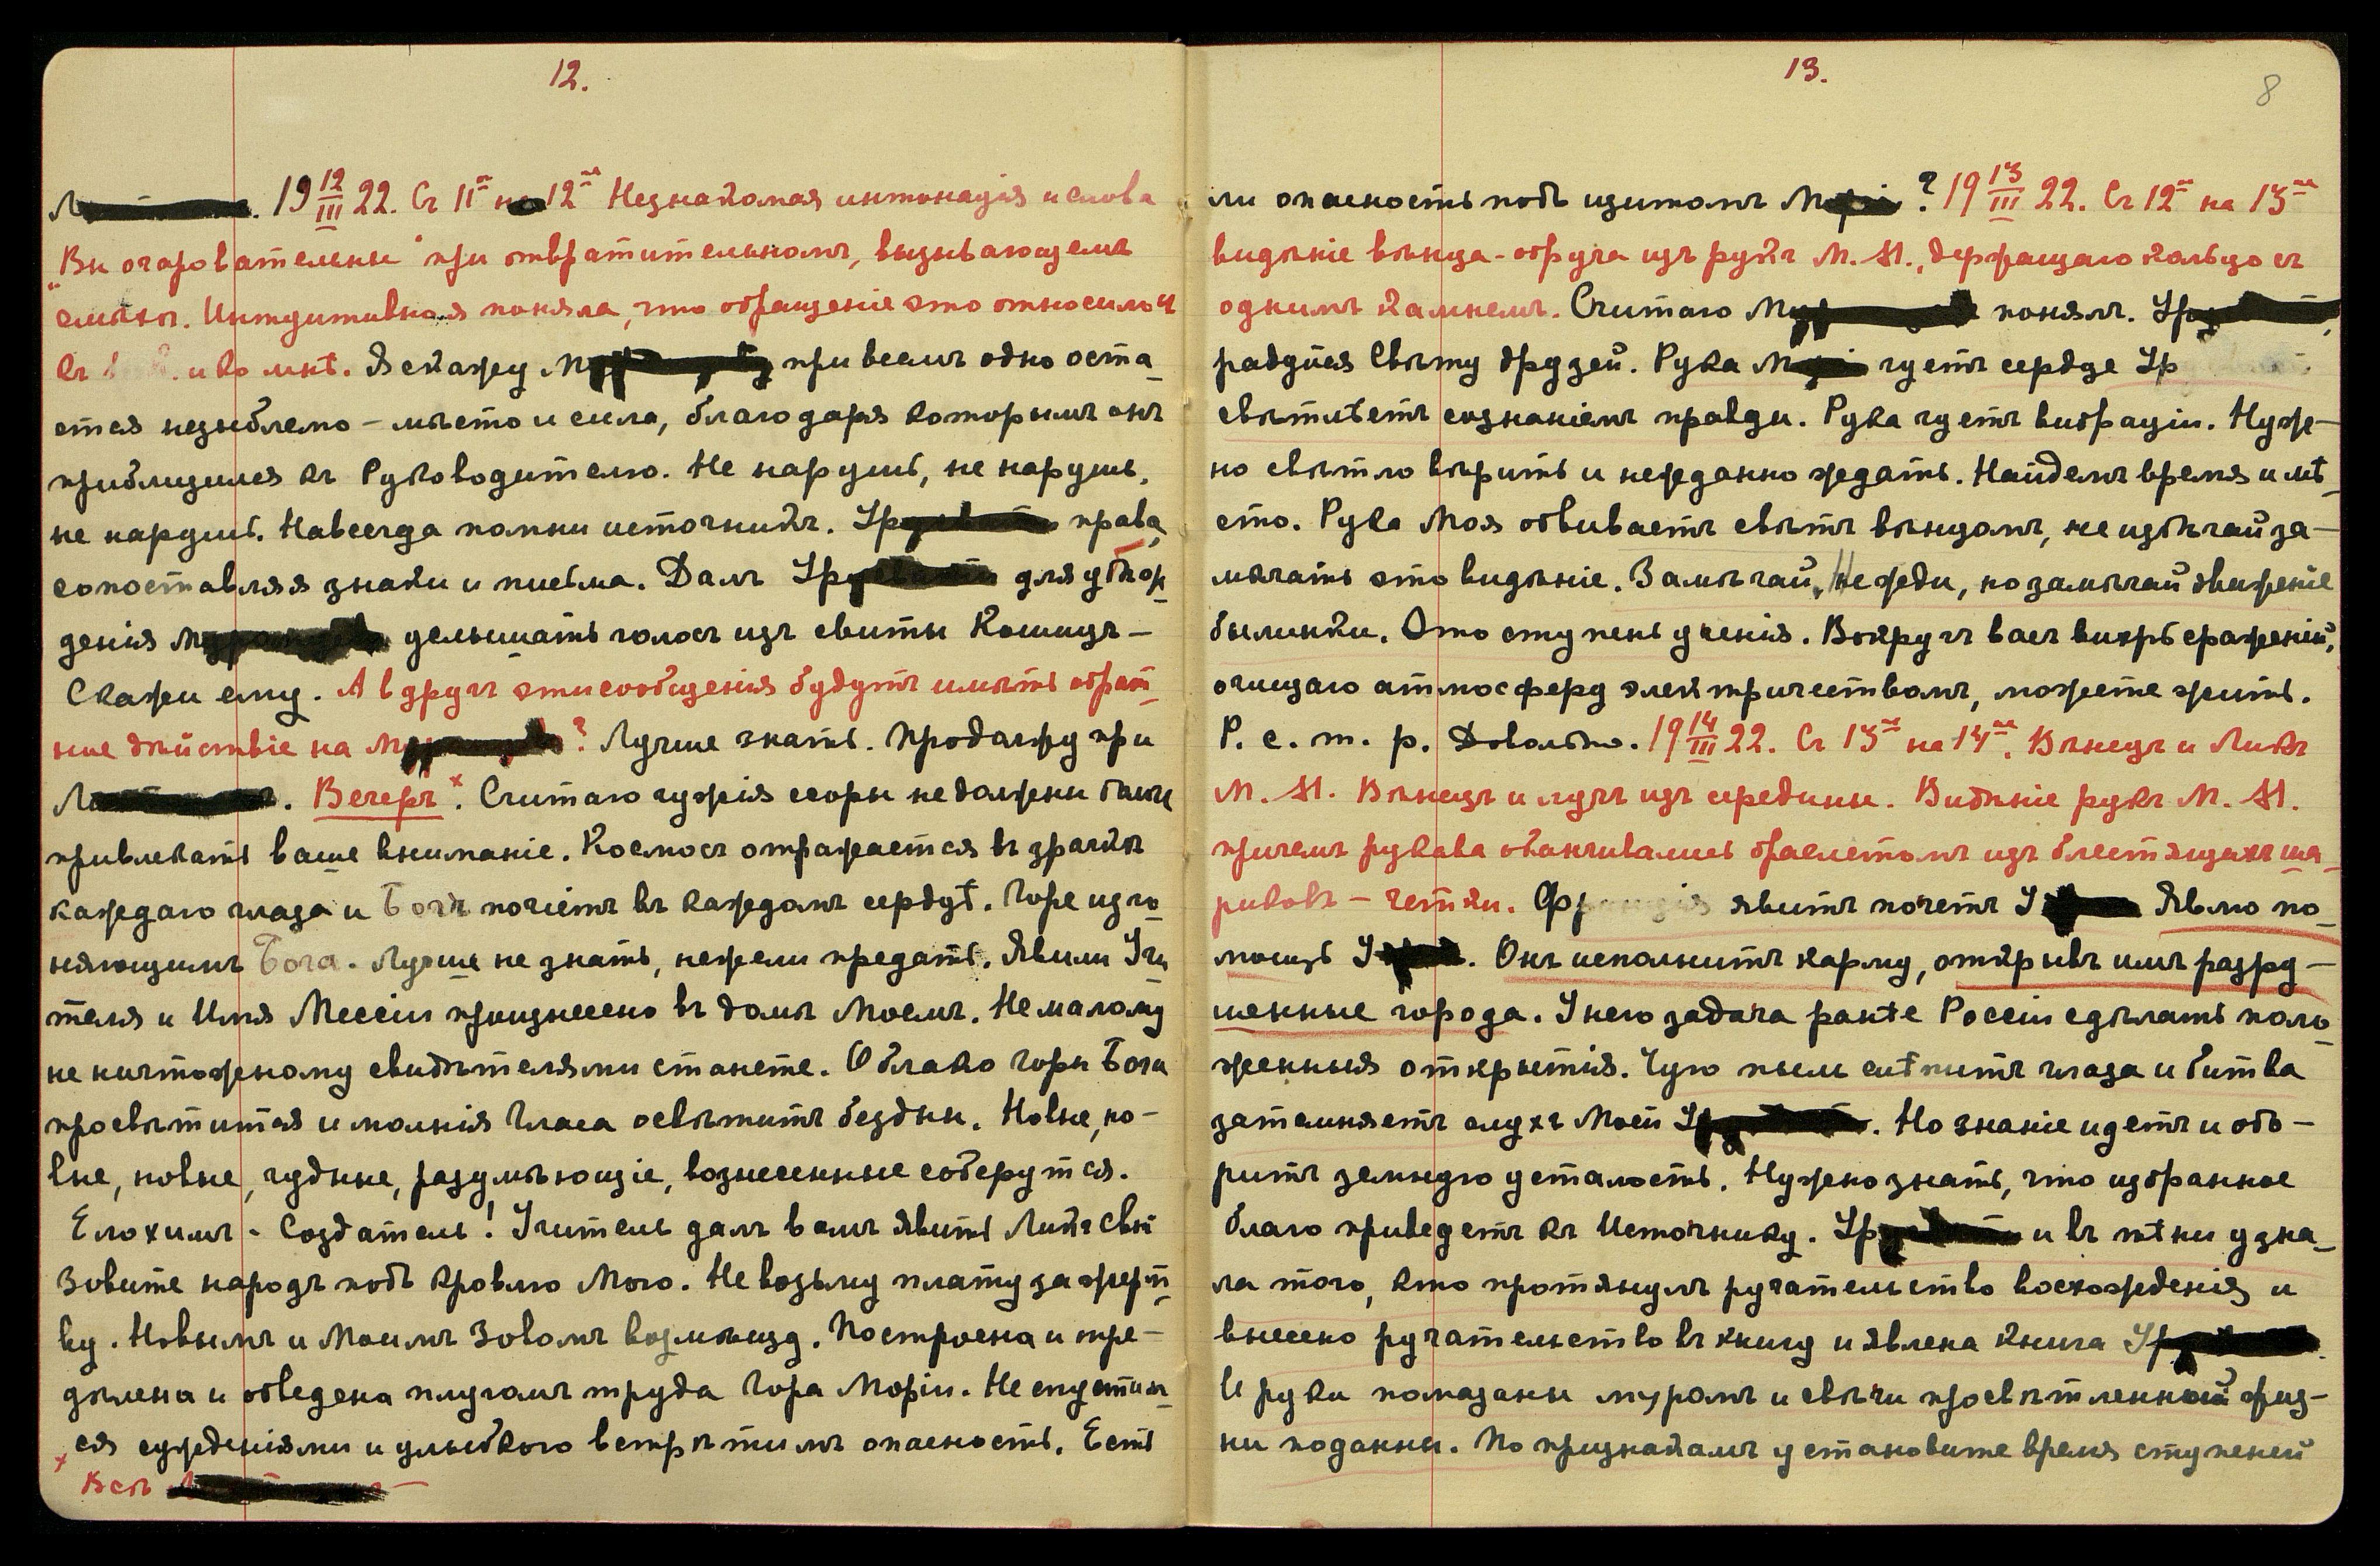 12.
19 12/III 22. Съ 11го на 12ое Незнакомая интонація и слова
"Вы очаровательны" при отвратительномъ, вызывающемъ
смѣхѣ. Интуитивно я поняла, что обращеніе это относилось
къ и ко мнѣ. Я скажу при всемъ одно оста-
ется незыблемо – мѣсто и сила, благодаря которымъ онъ
приблизился къ Руководителю. Не нарушь, не нарушь,
не нарушь. Навсегда помни источникъ. Ур права,
сопоставляя знаки и письма. Далъ Ур для убѣж-
денія услышать голосъ изъ свиты Кошицъ –
Скажи ему. А вдругъ эти сообщенія будутъ имѣть обрат-
ное дѣйствіе на ? Лучше знать. Продолжу при
. Вечеръ x. Считаю чужія ссоры не должны были
привлекать ваше вниманіе. Космосъ отражается въ зрачкѣ
каждаго глаза и Богъ почіетъ въ каждомъ сердцѣ. Горе изго-
няющимъ Бога. Лучше не знать, нежели предать. Явили Учи-
теля и Имя Мессіи произнесено въ домѣ Моемъ. Не малому
не ничтожному свидѣтелями станете. Облако Горы Бога
просвѣтится и молнія Гласа освѣтитъ бездны. Новые, но-
вые, новые, чудные, разумѣющіе, вознесенные соберутся.
Елохимъ - Создатель! Учитель далъ вамъ явить Ликъ Свѣ
Зовите народъ подъ кровлю Мою. Не возьму плату за жерт-
ву. Новымъ и Моимъ Зовомъ возмѣщу. Построена и пре-
дѣлена и обведена плугомъ труда Гора Моріи. Не смутим-
ся сужденіями и улыбкою встрѣтимъ опасность. Есть
x Всѣ
13.
8
ли опасность подъ щитомъ М ? 19 13/III 22. Съ 12го на 13ое
видѣніе вѣнца-обруча изъ рукъ М. М., держащаго кольцо съ
однимъ камнемъ. Считаю понялъ. Ур
радуйся Свѣту друзей. Рука М чуетъ сердце Ур
свѣтитъ сознаніемъ правды. Рука чуетъ вибраціи. Нуж-
но свѣтло вѣрить и нежданно ждать. Найдемъ время и мѣ-
сто. Рука Моя обвиваетъ свѣтъ вѣнцомъ, не избѣгай за-
мѣчать это видѣніе. Замѣчай, Не жди, но замѣчай движеніе
былинки. Это ступень ученія. Вокругъ васъ вихрь сраженій,
очищаю атмосферу электричествомъ, можете жить.
Р. с. т. р. Довольно. 19 14/III 22. Съ 13го на 14ое. Вѣнецъ и Ликъ
М. М. Вѣнецъ и лучъ изъ середины. Видѣніе рукъ М. М.
причемъ рукава оканчивались браслетомъ изъ блестящихъ ша-
риковъ – четки. Франція явитъ почетъ Явлю по-
мощь . Онъ исполнитъ карму, открывъ имъ разру-
шенные города. У него задача ранѣе Россіи сдѣлать поло
женныя открытія. Чую пыль слѣпитъ глаза и битва
затемняетъ слухъ Моей Ур . Но знаніе идетъ и обо-
ритъ земную усталость. Нужно знать, что избранное
благо приведетъ къ Источнику. Ур и въ тѣни узна-
ла того, кто протянулъ ручательство восхожденія и
внесено ручательство въ книгу и явлена книга Ур
И руки помазаны муромъ и свѣчи просвѣтленной жиз-
ни поданы. По признакамъ установите время ступеней